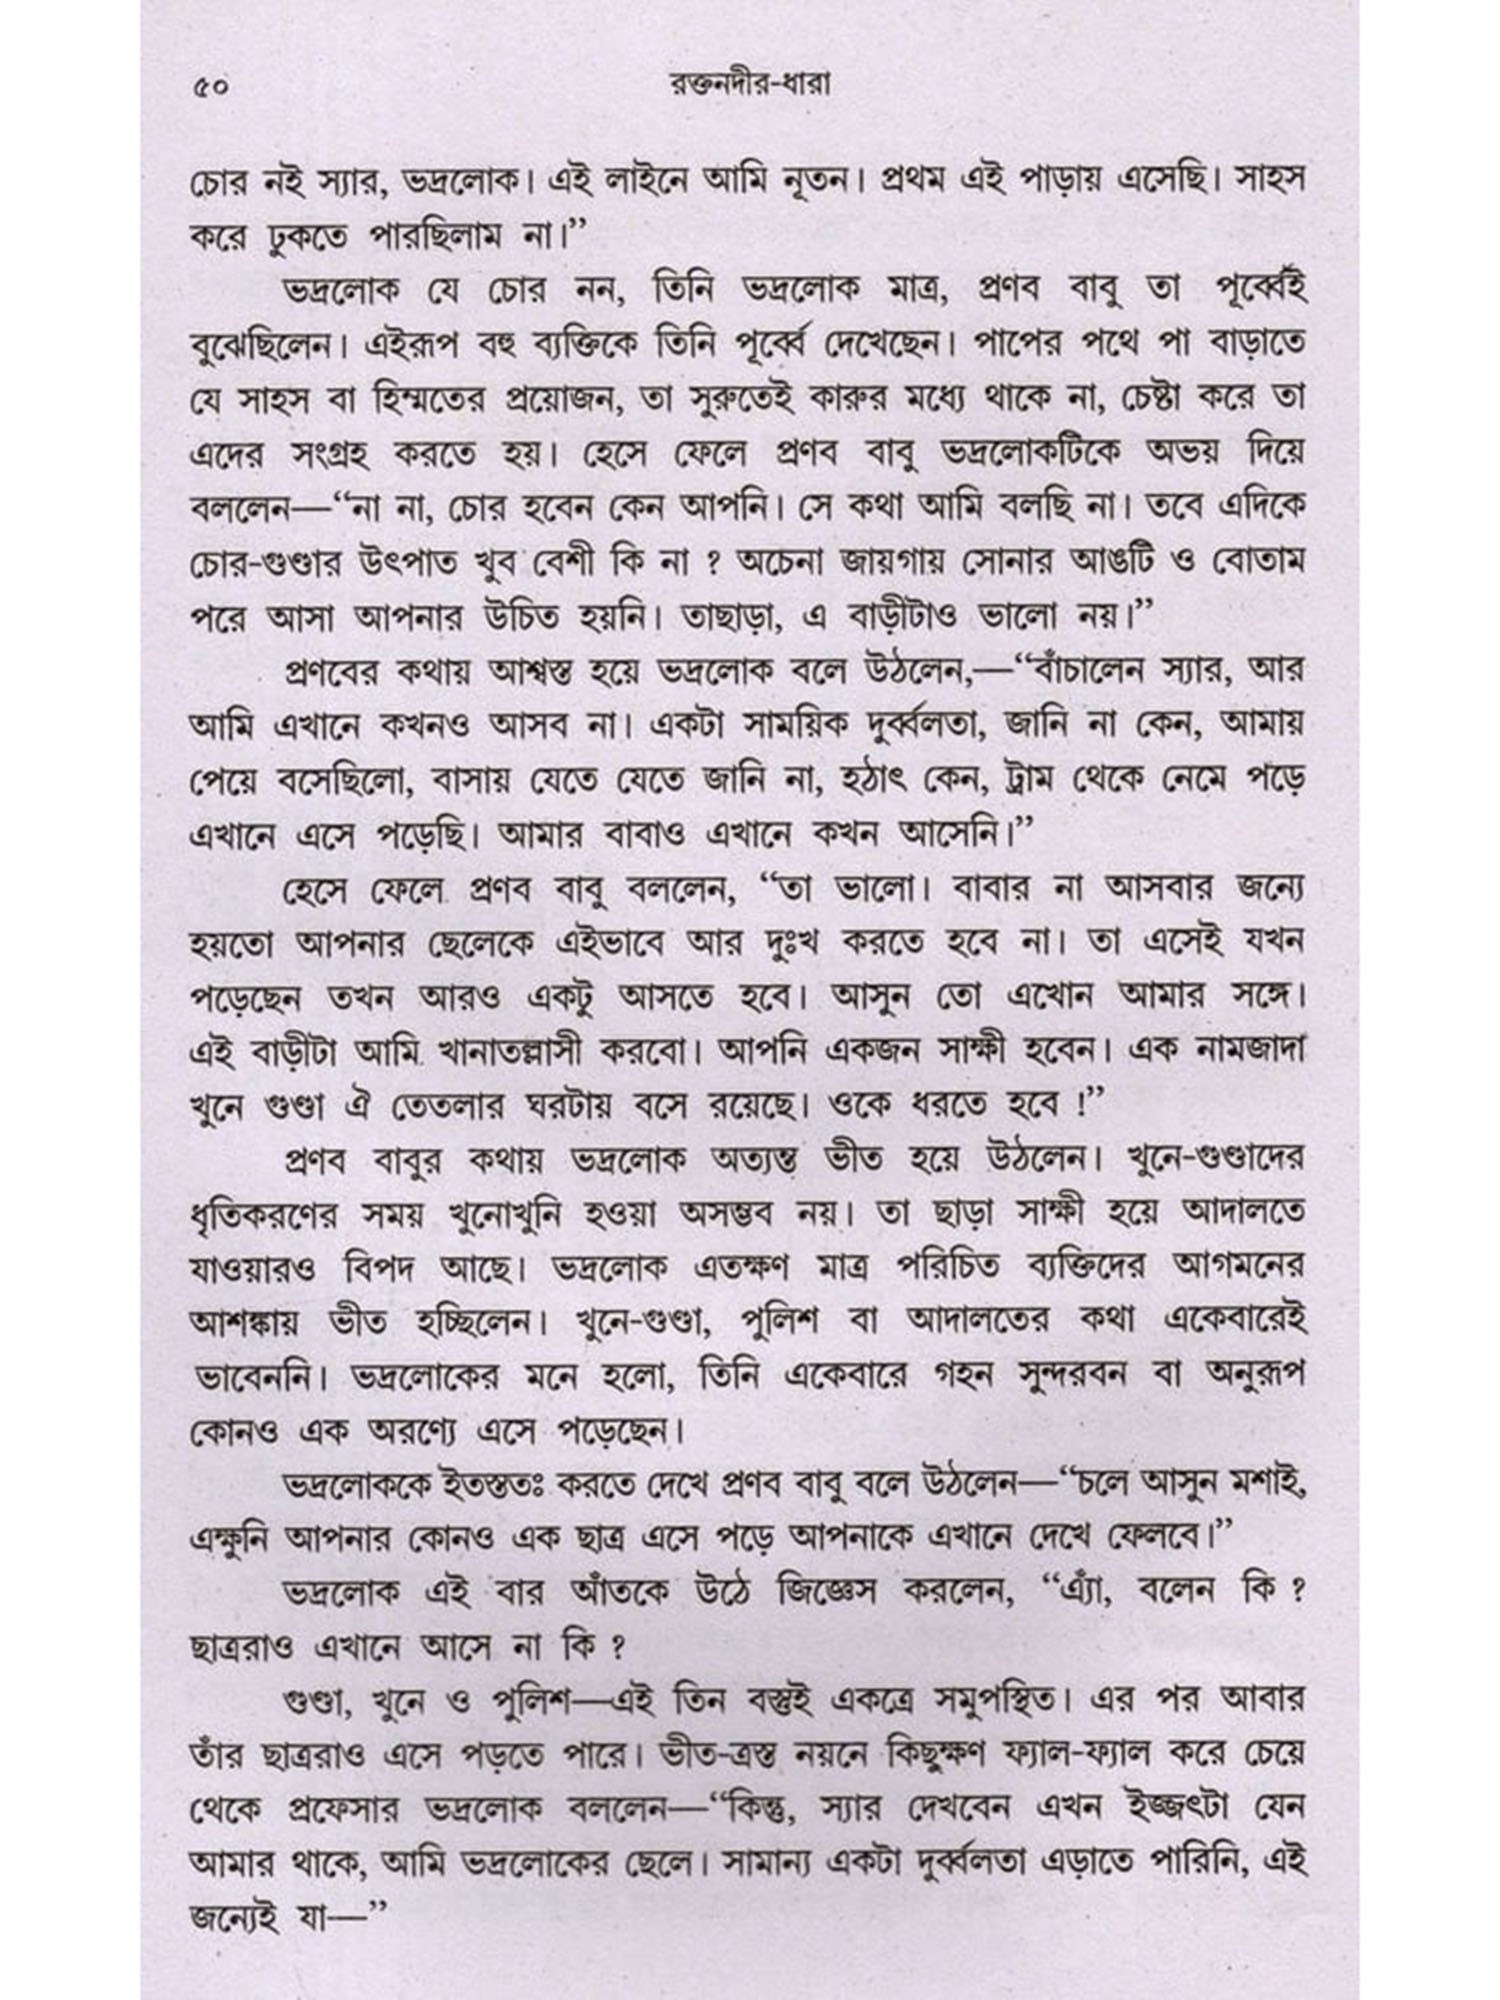 ৫০
রক্তনদীর-ধারা
চোর নই স্যার, ভদ্রলোক। এই লাইনে আমি নূতন। প্রথম এই পাড়ায় এসেছি। সাহস
করে ঢুকতে পারছিলাম না।”
ভদ্রলোক যে চোর নন, তিনি ভদ্রলোক মাত্র, প্রণব বাবু তা পূর্ব্বেই
বুঝেছিলেন। এইরূপ বহু ব্যক্তিকে তিনি পূর্ব্বে দেখেছেন। পাপের পথে পা বাড়াতে
যে সাহস বা হিম্মতের প্রয়োজন, তা সুরুতেই কারুর মধ্যে থাকে না, চেষ্টা করে তা
এদের সংগ্রহ করতে হয়। হেসে ফেলে প্রণব বাবু ভদ্রলোকটিকে অভয় দিয়ে
বললেন—“না না, চোর হবেন কেন আপনি। সে কথা আমি বলছি না। তবে এদিকে
চোর-গুণ্ডার উৎপাত খুব বেশী কি না ? অচেনা জায়গায় সোনার আঙটি ও বোতাম
পরে আসা আপনার উচিত হয়নি। তাছাড়া, এ বাড়ীটাও ভালো নয়।”
প্রণবের কথায় আশ্বস্ত হয়ে ভদ্রলোক বলে উঠলেন,—“বাঁচালেন স্যার, আর
আমি এখানে কখনও আসব না। একটা সাময়িক দুর্ব্বলতা, জানি না কেন, আমায়
পেয়ে বসেছিলো, বাসায় যেতে যেতে জানি না, হঠাৎ কেন, ট্রাম থেকে নেমে পড়ে
এখানে এসে পড়েছি। আমার বাবাও এখানে কখন আসেনি।”
হেসে ফেলে প্রণব বাবু বললেন, “তা ভালো। বাবার না আসবার জন্যে
হয়তো আপনার ছেলেকে এইভাবে আর দুঃখ করতে হবে না। তা এসেই যখন
পড়েছেন তখন আরও একটু আসতে হবে। আসুন তো এখোন আমার সঙ্গে।
এই বাড়ীটা আমি খানাতল্লাসী করবো। আপনি একজন সাক্ষী হবেন। এক নামজাদা
খুনে গুণ্ডা ঐ তেতলার ঘরটায় বসে রয়েছে। ওকে ধরতে হবে !”
প্রণব বাবুর কথায় ভদ্রলোক অত্যন্ত ভীত হয়ে উঠলেন। খুনে-গুণ্ডাদের
ধৃতিকরণের সময় খুনোখুনি হওয়া অসম্ভব নয়। তা ছাড়া সাক্ষী হয়ে আদালতে
যাওয়ারও বিপদ আছে। ভদ্রলোক এতক্ষণ মাত্র পরিচিত ব্যক্তিদের আগমনের
আশঙ্কায় ভীত হচ্ছিলেন। খুনে-গুণ্ডা, পুলিশ বা আদালতের কথা একেবারেই
ভাবেননি। ভদ্রলোকের মনে হলো, তিনি একেবারে গহন সুন্দরবন বা অনুরূপ
কোনও এক অরণ্যে এসে পড়েছেন।
ভদ্রলোককে ইতস্ততঃ করতে দেখে প্রণব বাবু বলে উঠলেন—“চলে আসুন মশাই,
এক্ষুনি আপনার কোনও এক ছাত্র এসে পড়ে আপনাকে এখানে দেখে ফেলবে।”
ভদ্রলোক এই বার আঁতকে উঠে জিজ্ঞেস করলেন, “এ্যাঁ, বলেন কি ?
ছাত্ররাও এখানে আসে না কি ?
গুণ্ডা, খুনে ও পুলিশ—এই তিন বস্তুই একত্রে সমুপস্থিত। এর পর আবার
তাঁর ছাত্ররাও এসে পড়তে পারে। ভীত-ত্রস্ত নয়নে কিছুক্ষণ ফ্যাল-ফ্যাল করে চেয়ে
থেকে প্রফেসার ভদ্রলোক বললেন—“কিন্তু, স্যার দেখবেন এখন ইজ্জৎটা যেন
আমার থাকে, আমি ভদ্রলোকের ছেলে। সামান্য একটা দুর্ব্বলতা এড়াতে পারিনি, এই
জন্যেই যা—”